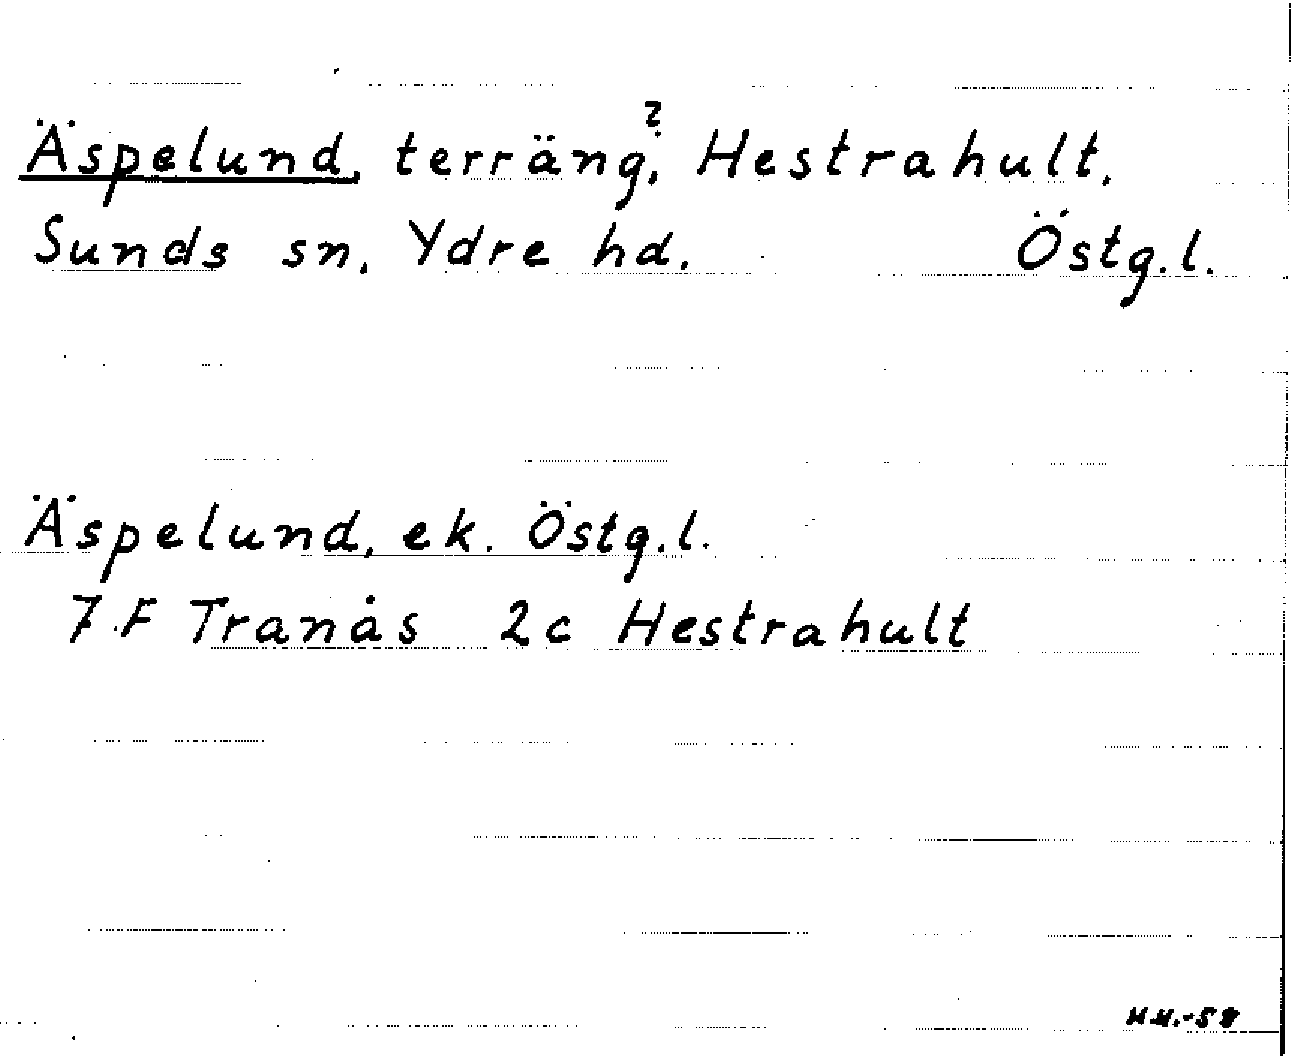 Äspelund, terräng?, Hestrahult,
Sunds sn, Ydre hd. Östg.l.
Äspelund, ek. Östg.l.
7 F Tranås 2c Hestrahult
H.H.-58